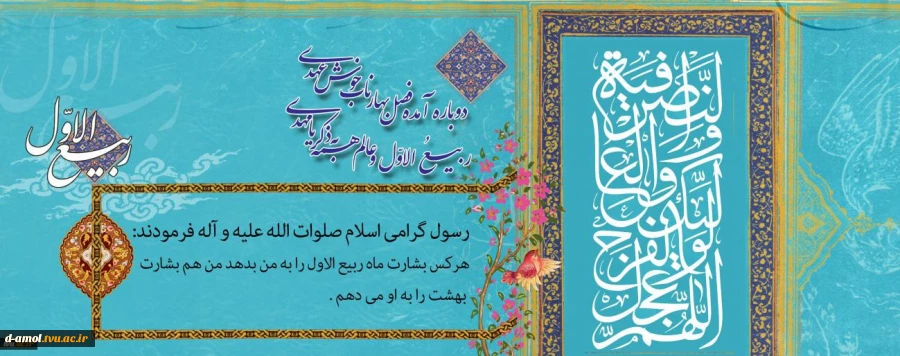 دوباره آمده فصل بهار ناب خوش عهدی
ربیعُ الاوّل و عالم همه به ذکر یا مهدی
ربیع الاوّل
رسول گرامی اسلام صلوات الله علیه و آله فرمودند:
هرکس بشارت ماه ربیع الاول را به من بدهد من هم بشارت
بهشت را به او می دهم .
اللهم عجل لولیک الفرج والعافیة والنصر
d-amol.tvu.ac.ir